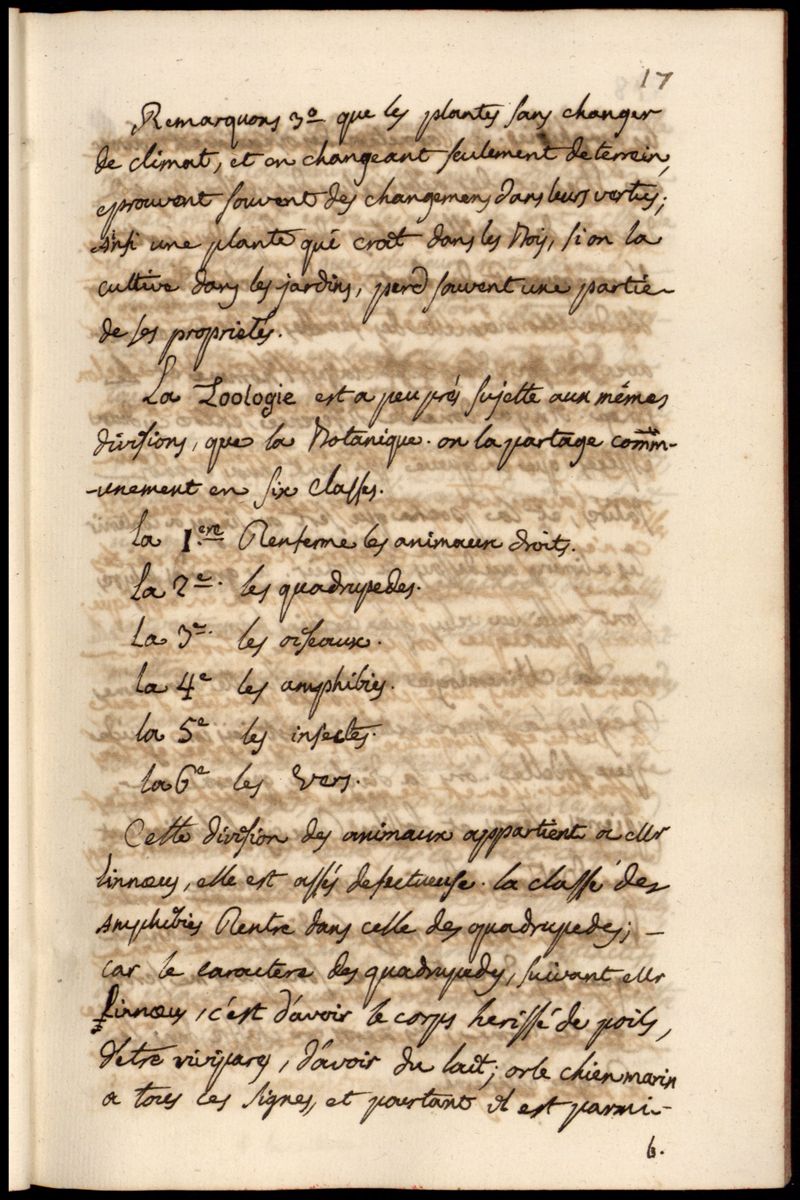 17
Remarquons 3o que les plantes sans changer
de climat, et en changeant seulement de terrein,
eprouvent souvent des changemens dans leurs vertus;
ainsi une plante qui croit dans les Bois, si on la
cultive dans les jardins, perd souvent une partie
de ses proprietés.
La Zoologie est a peu prés sujette aux mêmes
divisions, que la Botanique. on la partage comm-
-unement en six classes.
la 1.ere Renferme les animaux droits.
la 2e. les quadrupedes.
la 3e. les oiseaux.
la 4e les amphibies.
la 5e les insectes.
la 6e les Vers.
Cette division des animaux appartient a Mr
linnœus, elle est assés defectueuse. la classe des
Amphibies Rentre dans celle des quadrupedes; -
car le caractere des quadrupedes, suivant Mr
Linnœus, c'est d'avoir le corps herissé de poils,
d'etre vivipares, d'avoir du lait; or le chien marin
a tous ces signes, et pourtant il est parmi-
6.